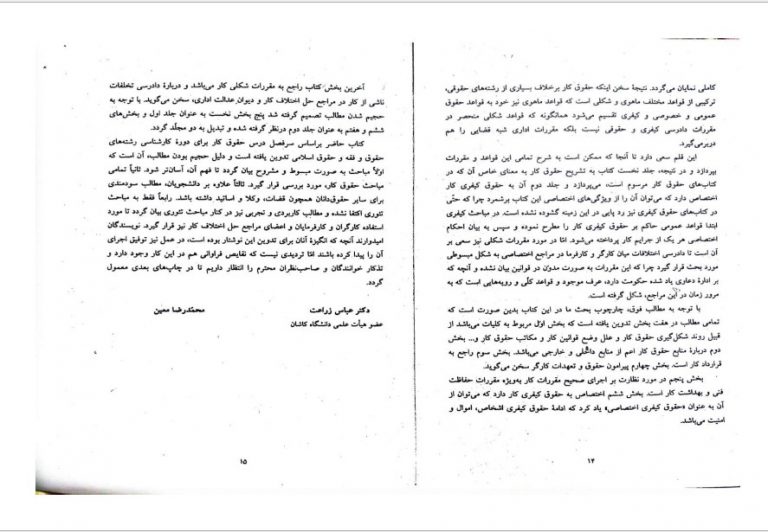 کاملی نمایان می‌گردد. نتیجهٔ سخن اینکه حقوق کار برخلاف بسیاری از رشته‌های حقوقی،
ترکیبی از قواعد مختلف ماهوی و شکلی است که قواعد ماهوی نیز خود به قواعد حقوق
عمومی و خصوصی و کیفری تقسیم می‌شود همانگونه که قواعد شکلی منحصر در
مقررات دادرسی کیفری و حقوقی نیست بلکه مقررات اداری شبه قضایی را هم
دربرمی‌گیرد.
این قلم سعی دارد تا آنجا که ممکن است به شرح تمامی این قواعد و مقررات
بپردازد و در نتیجه، جلد نخست کتاب به تشریح حقوق کار به معنای خاص آن که در
کتاب‌های حقوق کار مرسوم است، می‌پردازد و جلد دوم آن به حقوق کیفری کار
اختصاص دارد که می‌توان آن را از ویژگی‌های اختصاصی این کتاب برشمرد چرا که حتّی
در کتاب‌های حقوق کیفری نیز رد پایی در این زمینه گشوده نشده است. در مباحث کیفری
ابتدا قواعد عمومی حاکم بر حقوق کیفری کار را مطرح نموده و سپس به بیان احکام
اختصاصی هر یک از جرایم کار پرداخته می‌شود. امّا در مورد مقررات شکلی نیز سعی بر
آن است تا دادرسی اختلافات میان کارگر و کارفرما در مراجع اختصاصی به شکل مبسوطی
مورد بحث قرار گیرد چرا که این مقررات به صورت مدوّن در قوانین بیان نشده و آنچه که
بر ادارهٔ دعاوی یاد شده حکومت دارد، عرف موجود و قواعد کلّی و رویه‌هایی است که به
مرور زمان در این مراجع، شکل گرفته است.
با توجه به مطالب فوق، چارچوب بحث ما در این کتاب بدین صورت است که
تمامی مطالب در هفت بخش تدوین یافته است که بخش اوّل مربوط به کلیات می‌باشد از
قبیل روند شکل‌گیری حقوق کار و علل وضع قوانین کار و مکاتب حقوق کار و... بخش
دوم دربارهٔ منابع حقوق کار اعم از منابع داخلی و خارجی می‌باشد. بخش سوم راجع به
قرارداد کار است. بخش چهارم پیرامون حقوق و تعهدات کارگر سخن می‌گوید.
بخش پنجم در مورد نظارت بر اجرای صحیح مقررات کار به‌ویژه مقررات حفاظت
فنی و بهداشت کار است. بخش ششم اختصاص به حقوق کیفری کار دارد که می‌توان از
آن به عنوان «حقوق کیفری اختصاصی» یاد کرد که ادامهٔ حقوق کیفری اشخاص، اموال و
امنیت می‌باشد.
۱۴
آخرین بخش کتاب راجع به مقررات شکلی کار می‌باشد و دربارهٔ دادرسی تخلفات
ناشی از کار در مراجع حل اختلاف کار و دیوان عدالت اداری، سخن می‌گوید. با توجه به
حجیم شدن مطالب تصمیم گرفته شد پنج بخش نخست به عنوان جلد اول و بخش‌های
ششم و هفتم به عنوان جلد دوم درنظر گرفته شده و تبدیل به دو مجلّد گردد.
کتاب حاضر براساس سرفصل درس حقوق کار برای دورهٔ کارشناسی رشته‌های
حقوق و فقه و حقوق اسلامی تدوین یافته است و دلیل حجیم بودن مطالب، آن است که
اولاً مباحث به صورت مبسوط و مشروح بیان گردد تا فهم آن، آسان‌تر شود. ثانیاً تمامی
مباحث حقوق کار، مورد بررسی قرار گیرد. ثالثاً علاوه بر دانشجویان، مطالب سودمندی
برای سایر حقوق‌دانان همچون قضات، وکلا و اساتید داشته باشد. رابعاً فقط به مباحث
تئوری اکتفا نشده و مطالب کاربردی و تجربی نیز در کنار مباحث تئوری بیان گردد تا مورد
استفاده کارگران و کارفرمایان و اعضای مراجع حل اختلاف کار نیز قرار گیرد. نویسندگان
امیدوارند آنچه که انگیزهٔ آنان برای تدوین این نوشتار بوده است، در عمل نیز توفیق اجرای
آن را پیدا کرده باشند امّا تردیدی نیست که نقایص فراوانی هم در این کار وجود دارد و
تذکار خوانندگان و صاحب‌نظران محترم را انتظار داریم تا در چاپ‌های بعدی معمول
گردد.
دکتر عباس زراعت محمّدرضا معین
عضو هیأت علمی دانشگاه کاشان
۱۵